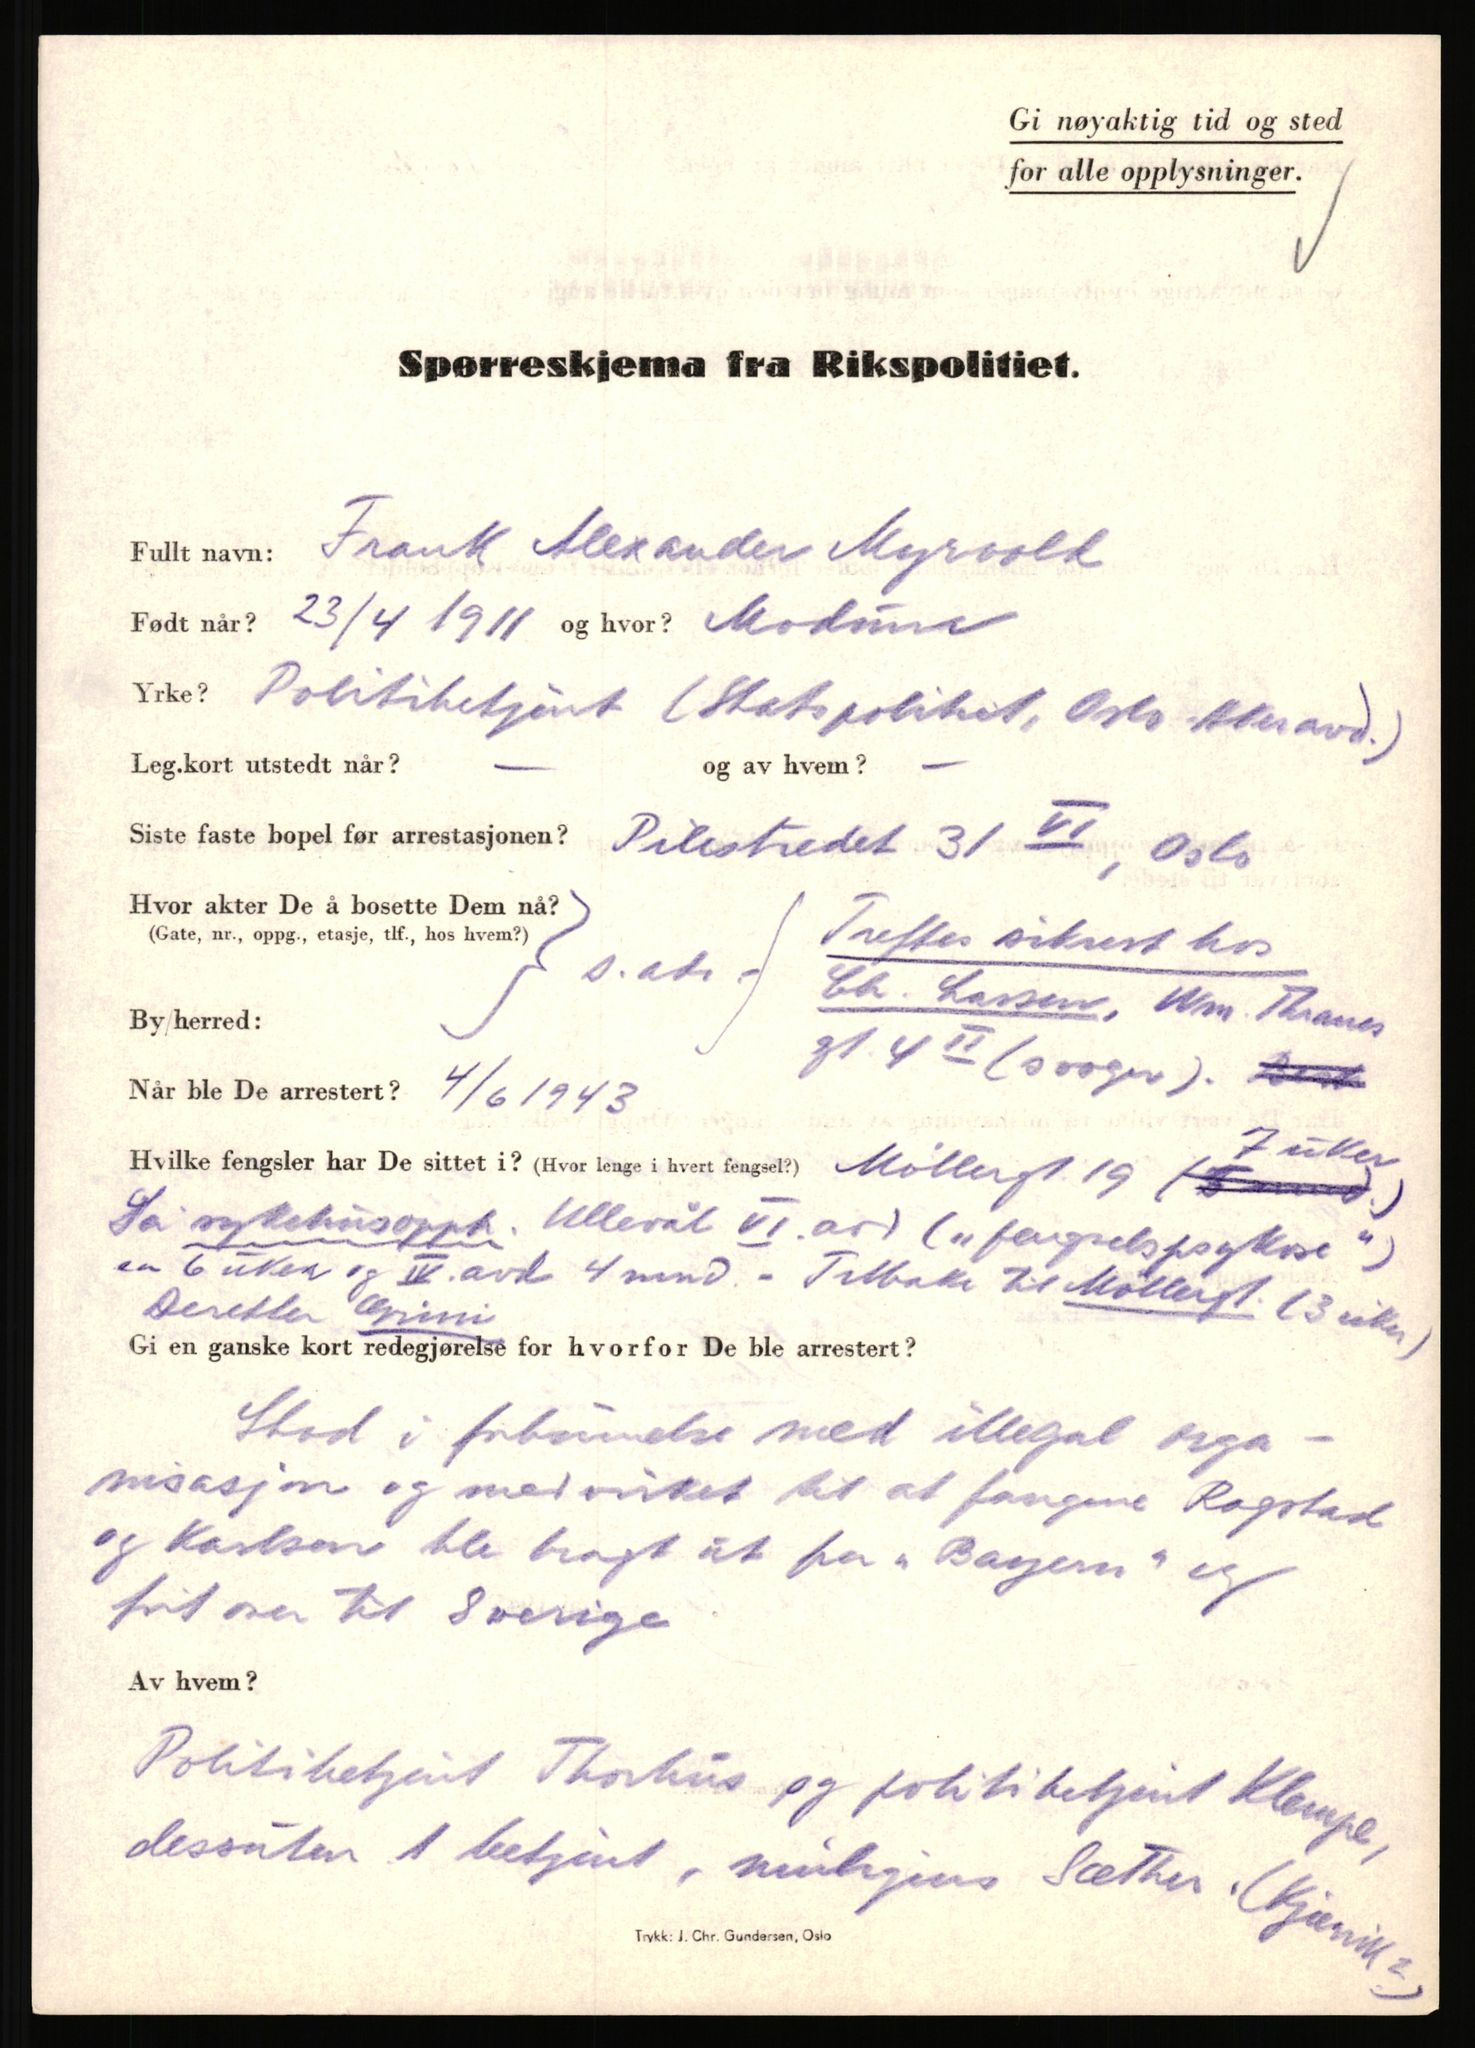 Gi nøyaktig tid og sted
for alle opplysninger.
Spørreskjema fra Rikspolitiet.
Fullt navn: Frank Alexander Myrvold
Født når? 23/4 1911 og hvor? Modum
Yrke? Politibetjent (Statspolitiet, Oslo Akeravd.)
Leg.kort utstedt når? — og av hvem? —
Siste faste bopel før arrestasjonen? Pilestredet 31 VI, Oslo
Hvor akter De å bosette Dem nå?
(Gate, nr., oppg., etasje, tlf., hos hvem?)
s. adr. - Treffes sikrest hos
Chr. Larsen, Wm. Thranes
gt. 4 II (svoger).
By/herred:
Når ble De arrestert? 4/6 1943
Hvilke fengsler har De sittet i? (Hvor lenge i hvert fengsel?) Møllergt. 19 (7 uker)
Så sykehusopph. Ullevål VI. avd („fengselspsykose")
en 6 uker og IV. avd 4 mnd. - Tilbake til Møllergt. (3 uker)
Deretter Grini
Gi en ganske kort redegjørelse for hvorfor De ble arrestert?
Stod i forbindelse med illegal orga-
nisasjon og medvirket til at fangene Rogstad
og Karlsen ble bragt ut fra „Bayern" og
ført over til Sverige
Av hvem?
Politibetjent Thorhus og politibetjent Klempe,
dessuten 1 betjent, muligens Sæther. (Kjørvik?)
Trykk: J. Chr. Gundersen, Oslo